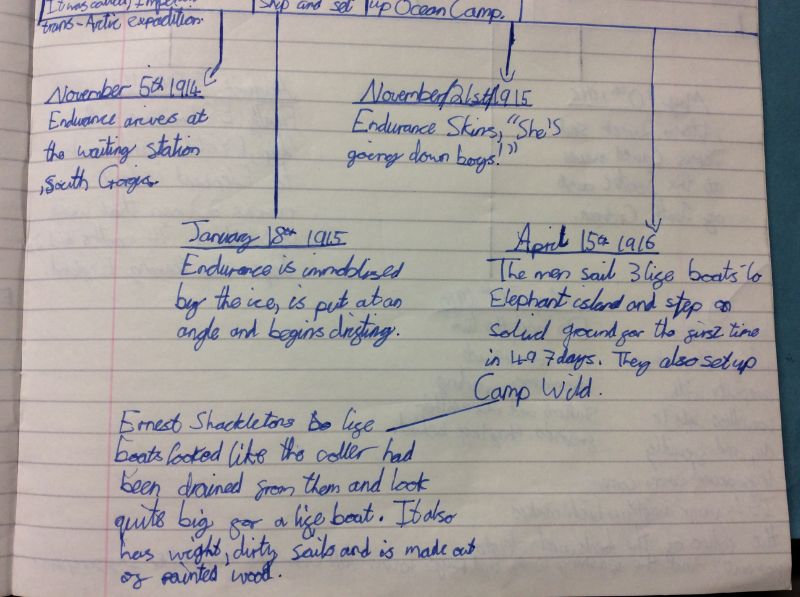 It was called, Imperial
trans-Artic expedition.
Ship and set up Ocean Camp.
November 5th 1914
Endurance arives at
the waiting station
, South Gorgia.
November/21st/1915
Endurance Skins, "She's
going down boys!"
January 18th 1915
Endurance is immoblised
by the ice, is put at an
angle and begins drifting.
April 15th 1916
The men sail 3 life boats to
Elephant island and step on
solid ground for the first time
in 497 days. They also set up
Camp Wild.
Ernest Shackletons life
boats looked like the coller had
been drained from them and look
quite big for a life boat. It also
has wight, dirty sails and is made out
of painted wood.